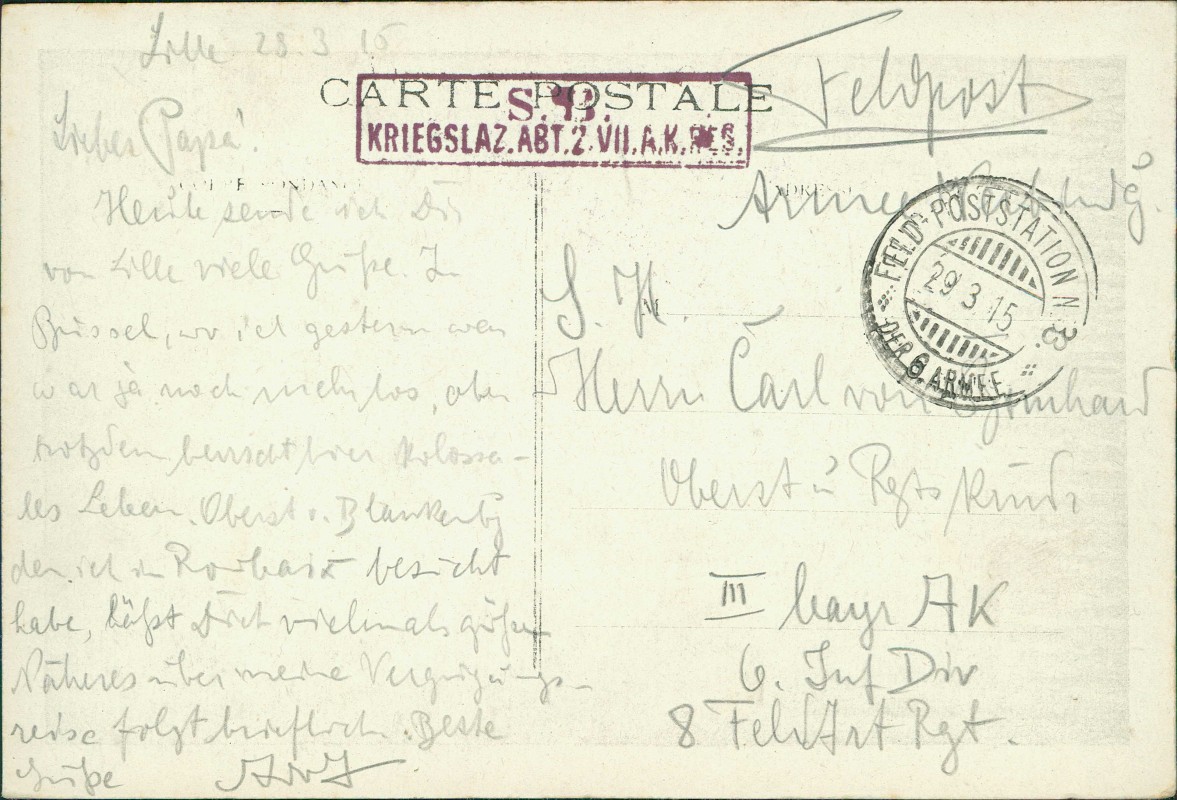 Lille 28.3.15
CARTE POSTALE
S. B.
KRIEGSLAZ. ABT. 2. VII. A. K. RES.
Feldpost
Liebes Papa!
Heute sende ich Dir
von Lille viele Grüße. In
Brüssel, wo ich gestern
war ja noch mehr los, aber
trotzdem herrscht hier kolossa-
les Leben. Oberst v. Blankenbg
den ich in Roubaix besucht
habe, läßt Dich vielmals grüßen
Näheres über meine Vergnügungs-
reise folgt brieflich. Beste
Grüße
ADRESSE
Armee
FELD-POSTSTATION N. 3.
29 3 15
DER 6 ARMEE
S. H.
M
Herrn Carl von
Oberst u Rgts Kmdr
III bayr AK
6. Inf Div
8 Feld Art Rgt.